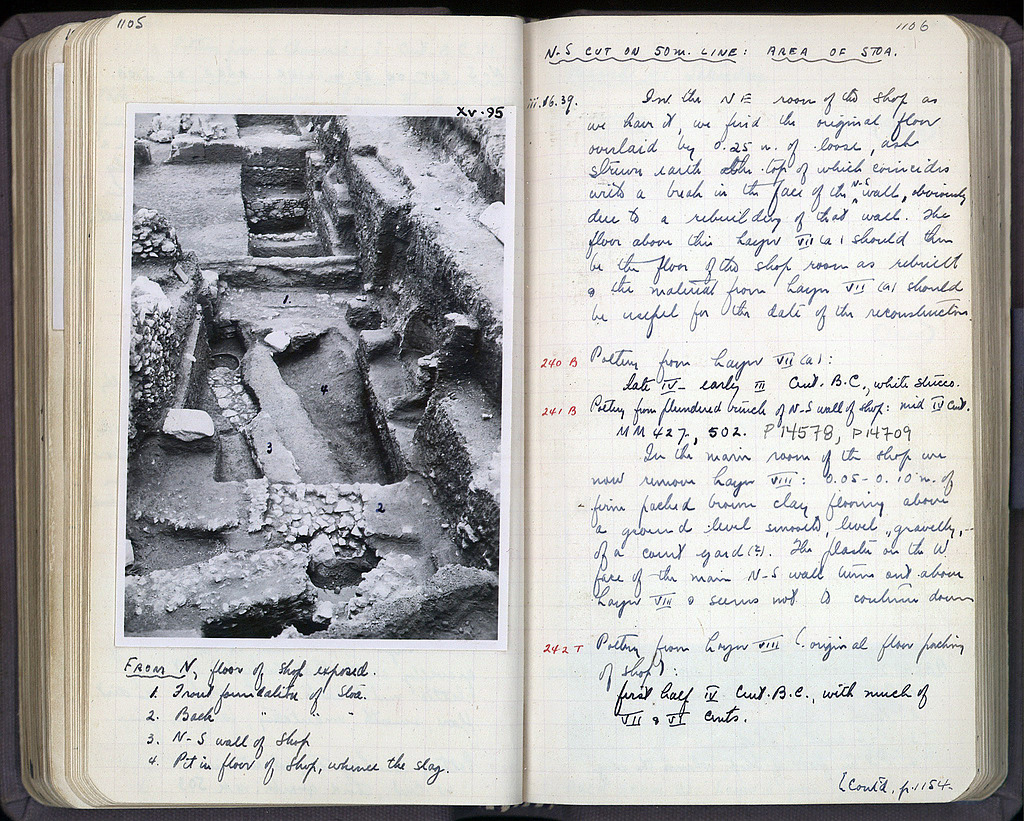 1105
XV·95
1.
4
3
2
From N, floor of shop exposed.
1. Front foundation of Stoa.
2. Back " " "
3. N-S wall of shop
4. Pit in floor of shop, whence the slag.
1106
N-S CUT ON 50m. LINE: AREA OF STOA.
iii.16.39. In the NE room of the shop as
we have it, we find the original floor
overlaid by 0.25 m. of loose, ash
strewn earth the top of which coincides
with a break in the face of the N-S wall, obviously
due to a rebuilding of that wall. The
floor above this Layer VII (a) should then
be the floor of the shop room as rebuilt
& the material from Layer VII (a) should
be useful for the date of the reconstruction
240 B Pottery from Layer VII (a):
late IV - early III Cent. B.C., white stucco.
241 B Pottery from plundered trench of N-S wall of shop: mid IV Cent.
MM 427, 502. P14578, P14709
In the main room of the shop we
now remove Layer VIII: 0.05-0.10 m. of
firm packed brown clay flooring above
a ground level smooth, level, gravelly,-
of a court yard(?). The plaster on the W
face of the main N-S wall turns out above
Layer VIII & seems not to continue down
242 T Pottery from Layer VIII (original floor packing
of shop):
first half IV Cent. B.C., with much of
VII & VI Cents.
[Cont'd, p. 1154.